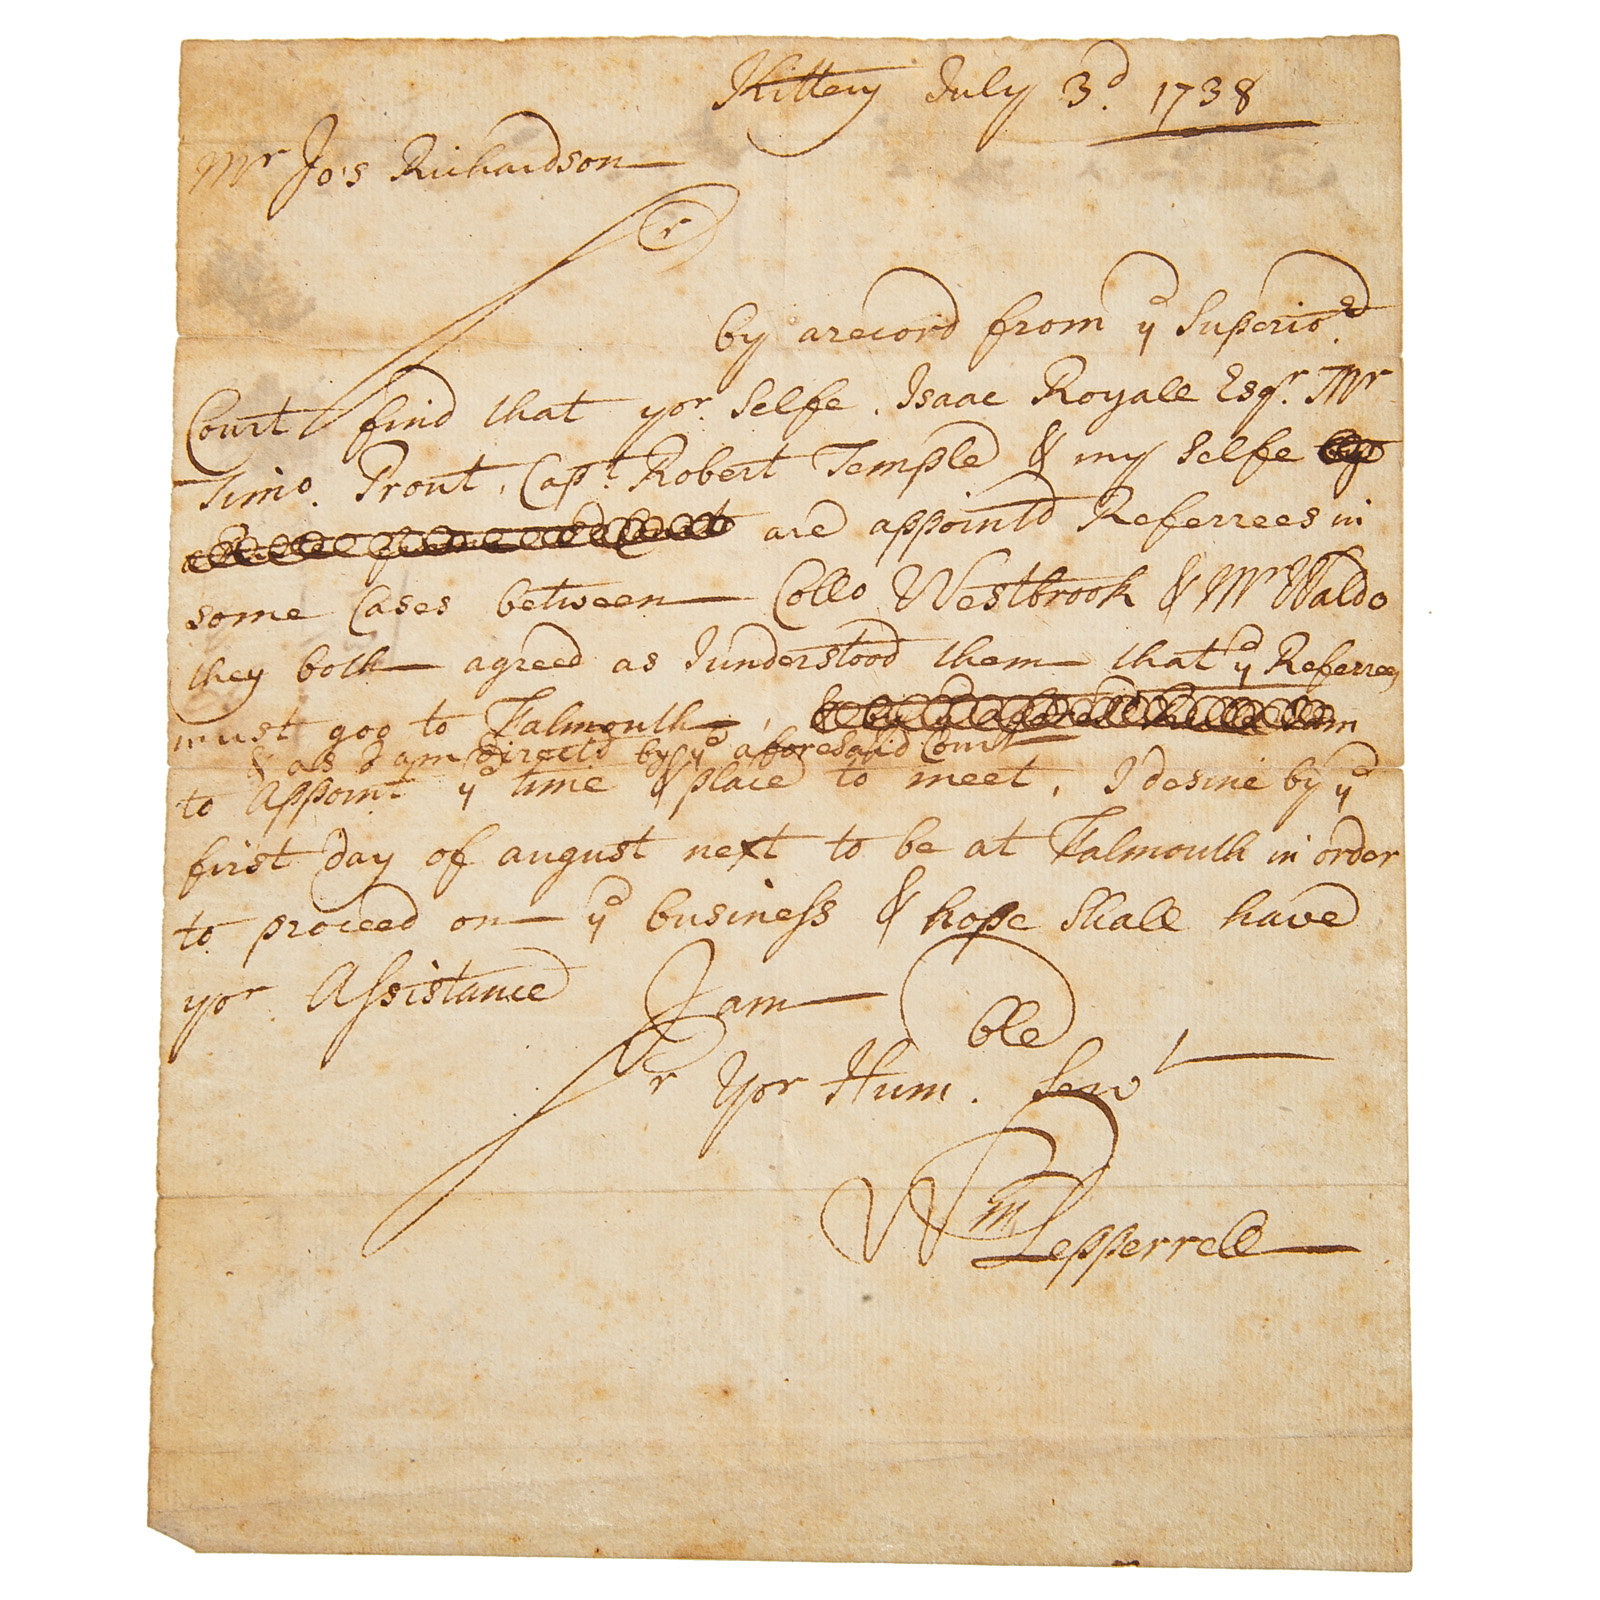 Kittery July 3d. 1738
Mr Jos Richardson
Sr
by a record from ye Superior
Court I find that yor. Selfe, Isaac Royall Esqr. Mr
Timo. Prout, Capt. Robert Temple & my Selfe
are appointd Referrees in
some Cases between Collo Westbrook & Mr Waldo
they both agreed as I understood them that ye Referrees
must goo to Falmouth,
& as I am Directd by ye aforesaid Court
to Appoint ye time & place to meet, I desire by ye
first Day of august next to be at Falmouth in order
to proceed on ye business & hope Shall have
yor Assistance I am
Sr Yor Humble Servt
Wm Pepperrell